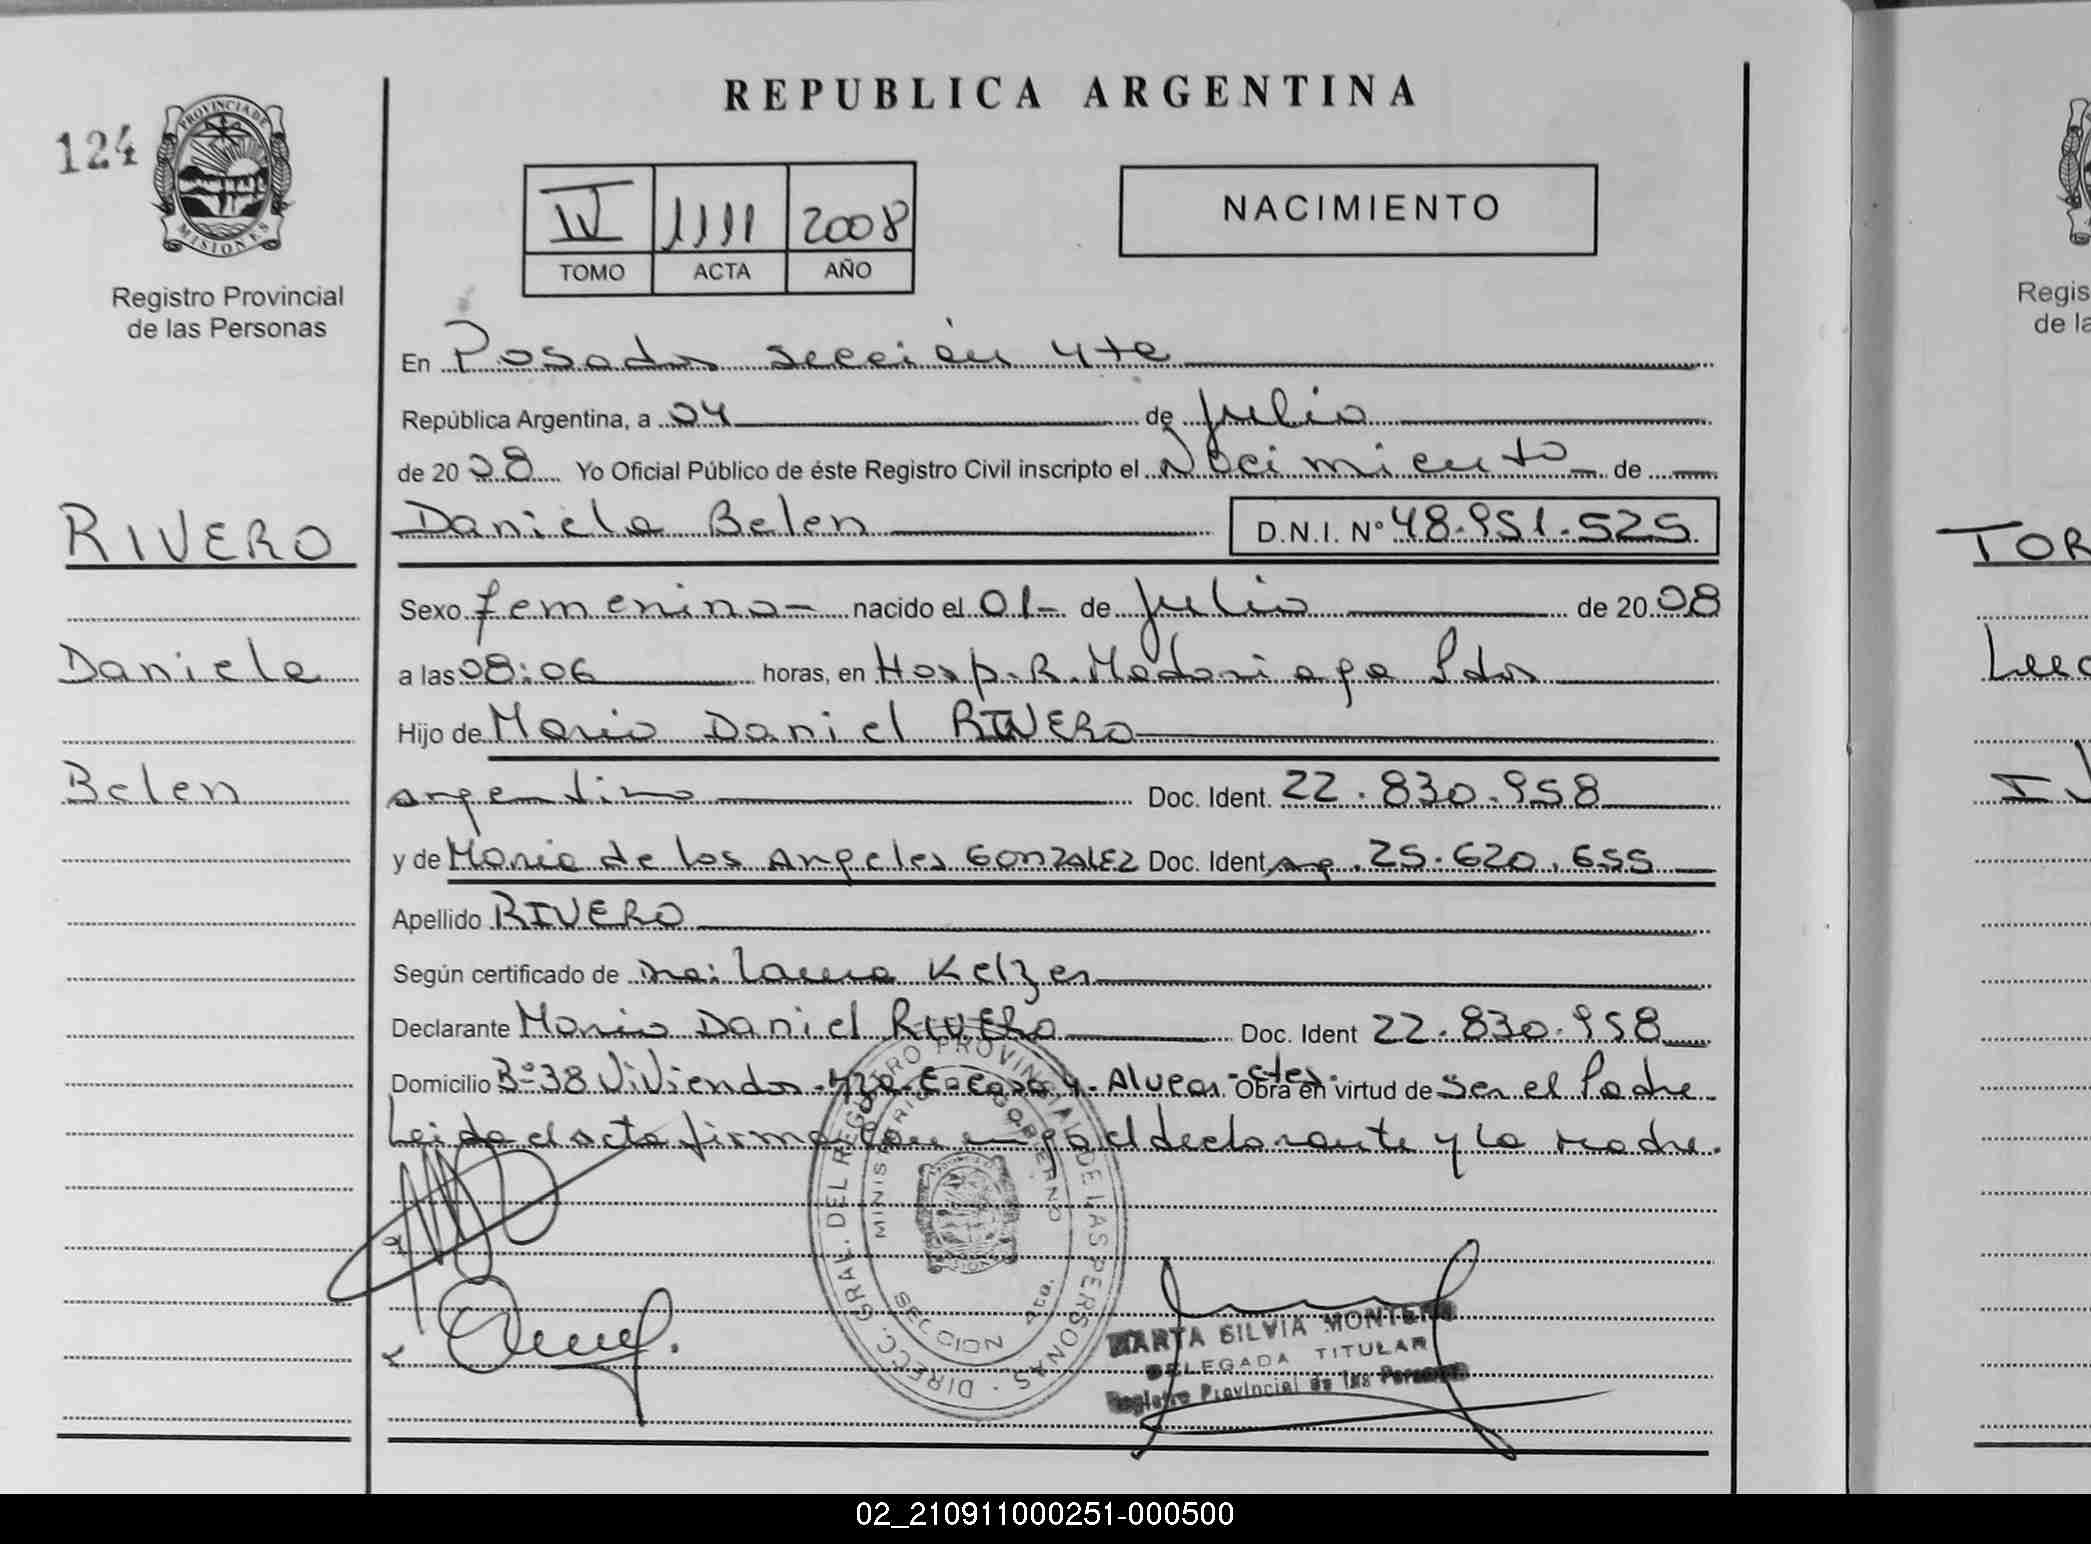 REPUBLICA ARGENTINA
124
PROVINCIA DE
MISIONES
Registro Provincial
de las Personas
IV 1111 2008
TOMO ACTA AÑO
NACIMIENTO
En Posadas sección 4ta
República Argentina, a 04 de Julio
de 2008 Yo Oficial Público de éste Registro Civil inscripto el Nacimiento de
RIVERO
Daniela Belen D.N.I. Nº 48.951.525
Sexo femenino nacido el 01 de Julio de 2008
Daniela
a las 08:06 horas, en Hosp. R. Madariaga Pdas
Hijo de Mario Daniel RIVERO
Belen
argentino Doc. Ident. 22.830.958
y de Maria de los Angeles GONZALEZ Doc. Ident arg. 25.620.655
Apellido RIVERO
Según certificado de Dra: Laura Kelzer
Declarante Mario Daniel RIVERO Doc. Ident 22.830.958
Domicilio Bº 38 Viviendas Alvear - Ctes. Obra en virtud de Ser el Padre
Leida el acta firma el declarante y la madre.
DIRECC. GRAL. DEL REGISTRO PROVINCIAL DE LAS PERSONAS
MINISTERIO GOBIERNO
SECCION 4ta.
MARTA SILVIA MONTERO
DELEGADA TITULAR
Registro Provincial de las Personas
Regis
de la
TOR
02_210911000251-000500